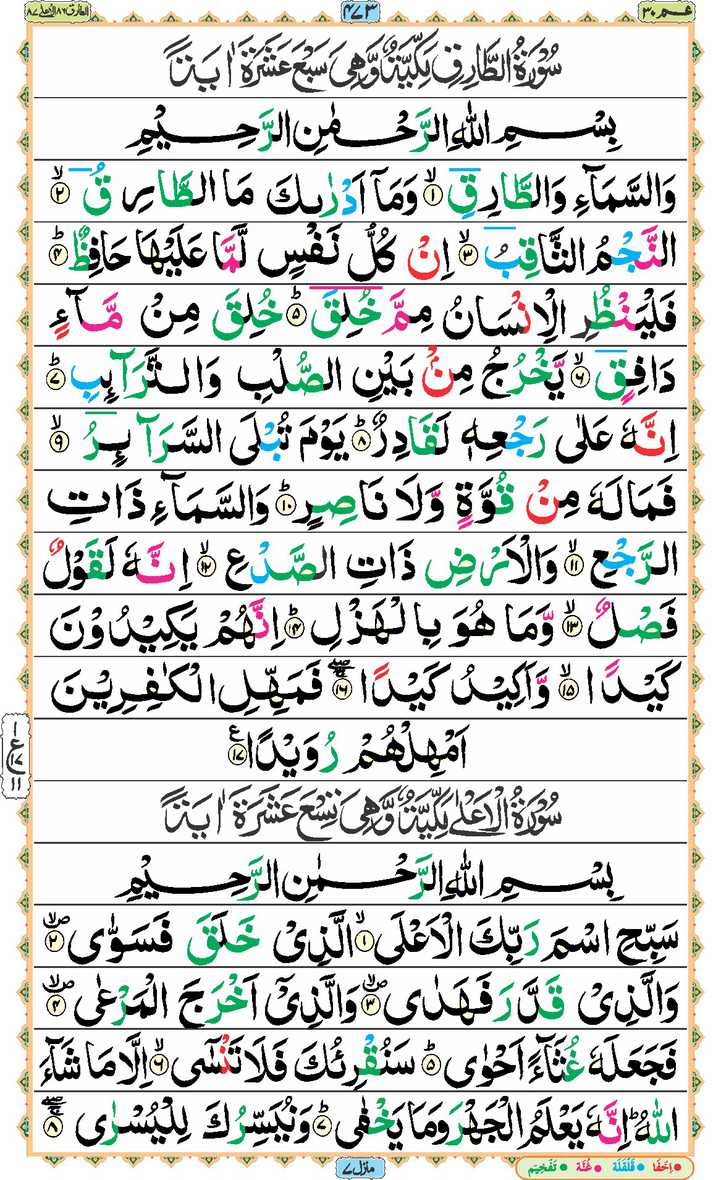 عم ٣٠ ٤٧٣ الطارق ٨٦ الاعلى ٨٧
سُوْرَةُ الطَّارِقِ مَكِّيَّةٌ وَّهِىَ سَبْعَ عَشَرَةَ اٰيَةً
بِسْمِ اللهِ الرَّحْمٰنِ الرَّحِيْمِ
وَالسَّمَآءِ وَالطَّارِقِ ۙ‏﴿۱﴾ وَمَاۤ اَدْرٰٮكَ مَا الطَّارِقُ ۙ‏﴿۲﴾
النَّجْمُ الثَّاقِبُ ۙ‏﴿۳﴾ اِنْ كُلُّ نَفْسٍ لَّمَّا عَلَيْهَا حَافِظٌ ؕ‏﴿۴﴾
فَلْيَنْظُرِ الْاِنْسَانُ مِمَّ خُلِقَ ؕ‏﴿۵﴾ خُلِقَ مِنْ مَّآءٍ
دَافِقٍ ۙ‏﴿۶﴾ يَّخْرُجُ مِنْۢ بَيْنِ الصُّلْبِ وَالتَّرَآئِبِ ؕ‏﴿۷﴾
اِنَّهٗ عَلٰى رَجْعِهٖ لَقَادِرٌ ؕ‏﴿۸﴾ يَوْمَ تُبْلَى السَّرَآئِرُ ۙ‏﴿۹﴾
فَمَا لَهٗ مِنْ قُوَّةٍ وَّلَا نَاصِرٍ ؕ‏﴿۱۰﴾ وَالسَّمَآءِ ذَاتِ
الرَّجْعِ ۙ‏﴿۱۱﴾ وَالْاَرْضِ ذَاتِ الصَّدْعِ ۙ‏﴿۱۲﴾ اِنَّهٗ لَقَوْلٌ
فَصْلٌ ۙ‏﴿۱۳﴾ وَّمَا هُوَ بِالْهَزْلِ ؕ‏﴿۱۴﴾ اِنَّهُمْ يَكِيْدُوْنَ
كَيْدًا ۙ‏﴿۱۵﴾ وَّاَكِيْدُ كَيْدًا ۖۚ‏﴿۱۶﴾ فَمَهِّلِ الْكٰفِرِيْنَ
اَمْهِلْهُمْ رُوَيْدًا ‏﴿۱۷﴾
۱
ع ۱۷
۱۱
سُوْرَةُ الْاَعْلٰى مَكِّيَّةٌ وَّهِىَ تِسْعَ عَشَرَةَ اٰيَةً
بِسْمِ اللهِ الرَّحْمٰنِ الرَّحِيْمِ
سَبِّحِ اسْمَ رَبِّكَ الْاَعْلَى ۙ‏﴿۱﴾ الَّذِىْ خَلَقَ فَسَوّٰى ۙ‏﴿۲﴾
وَالَّذِىْ قَدَّرَ فَهَدٰى ۙ‏﴿۳﴾ وَالَّذِىْۤ اَخْرَجَ الْمَرْعٰى ۙ‏﴿۴﴾
فَجَعَلَهٗ غُثَآءً اَحْوٰى ؕ‏﴿۵﴾ سَنُقْرِئُكَ فَلَا تَنْسٰٓى ۙ‏﴿۶﴾ اِلَّا مَا شَآءَ
اللهُ ؕ اِنَّهٗ يَعْلَمُ الْجَهْرَ وَمَا يَخْفٰى ؕ‏﴿۷﴾ وَنُيَسِّرُكَ لِلْيُسْرٰى ۖۚ‏﴿۸﴾
منزل ٧
اِخْفَا قَلْقَلَة غُنَّة تَفْخِيْم